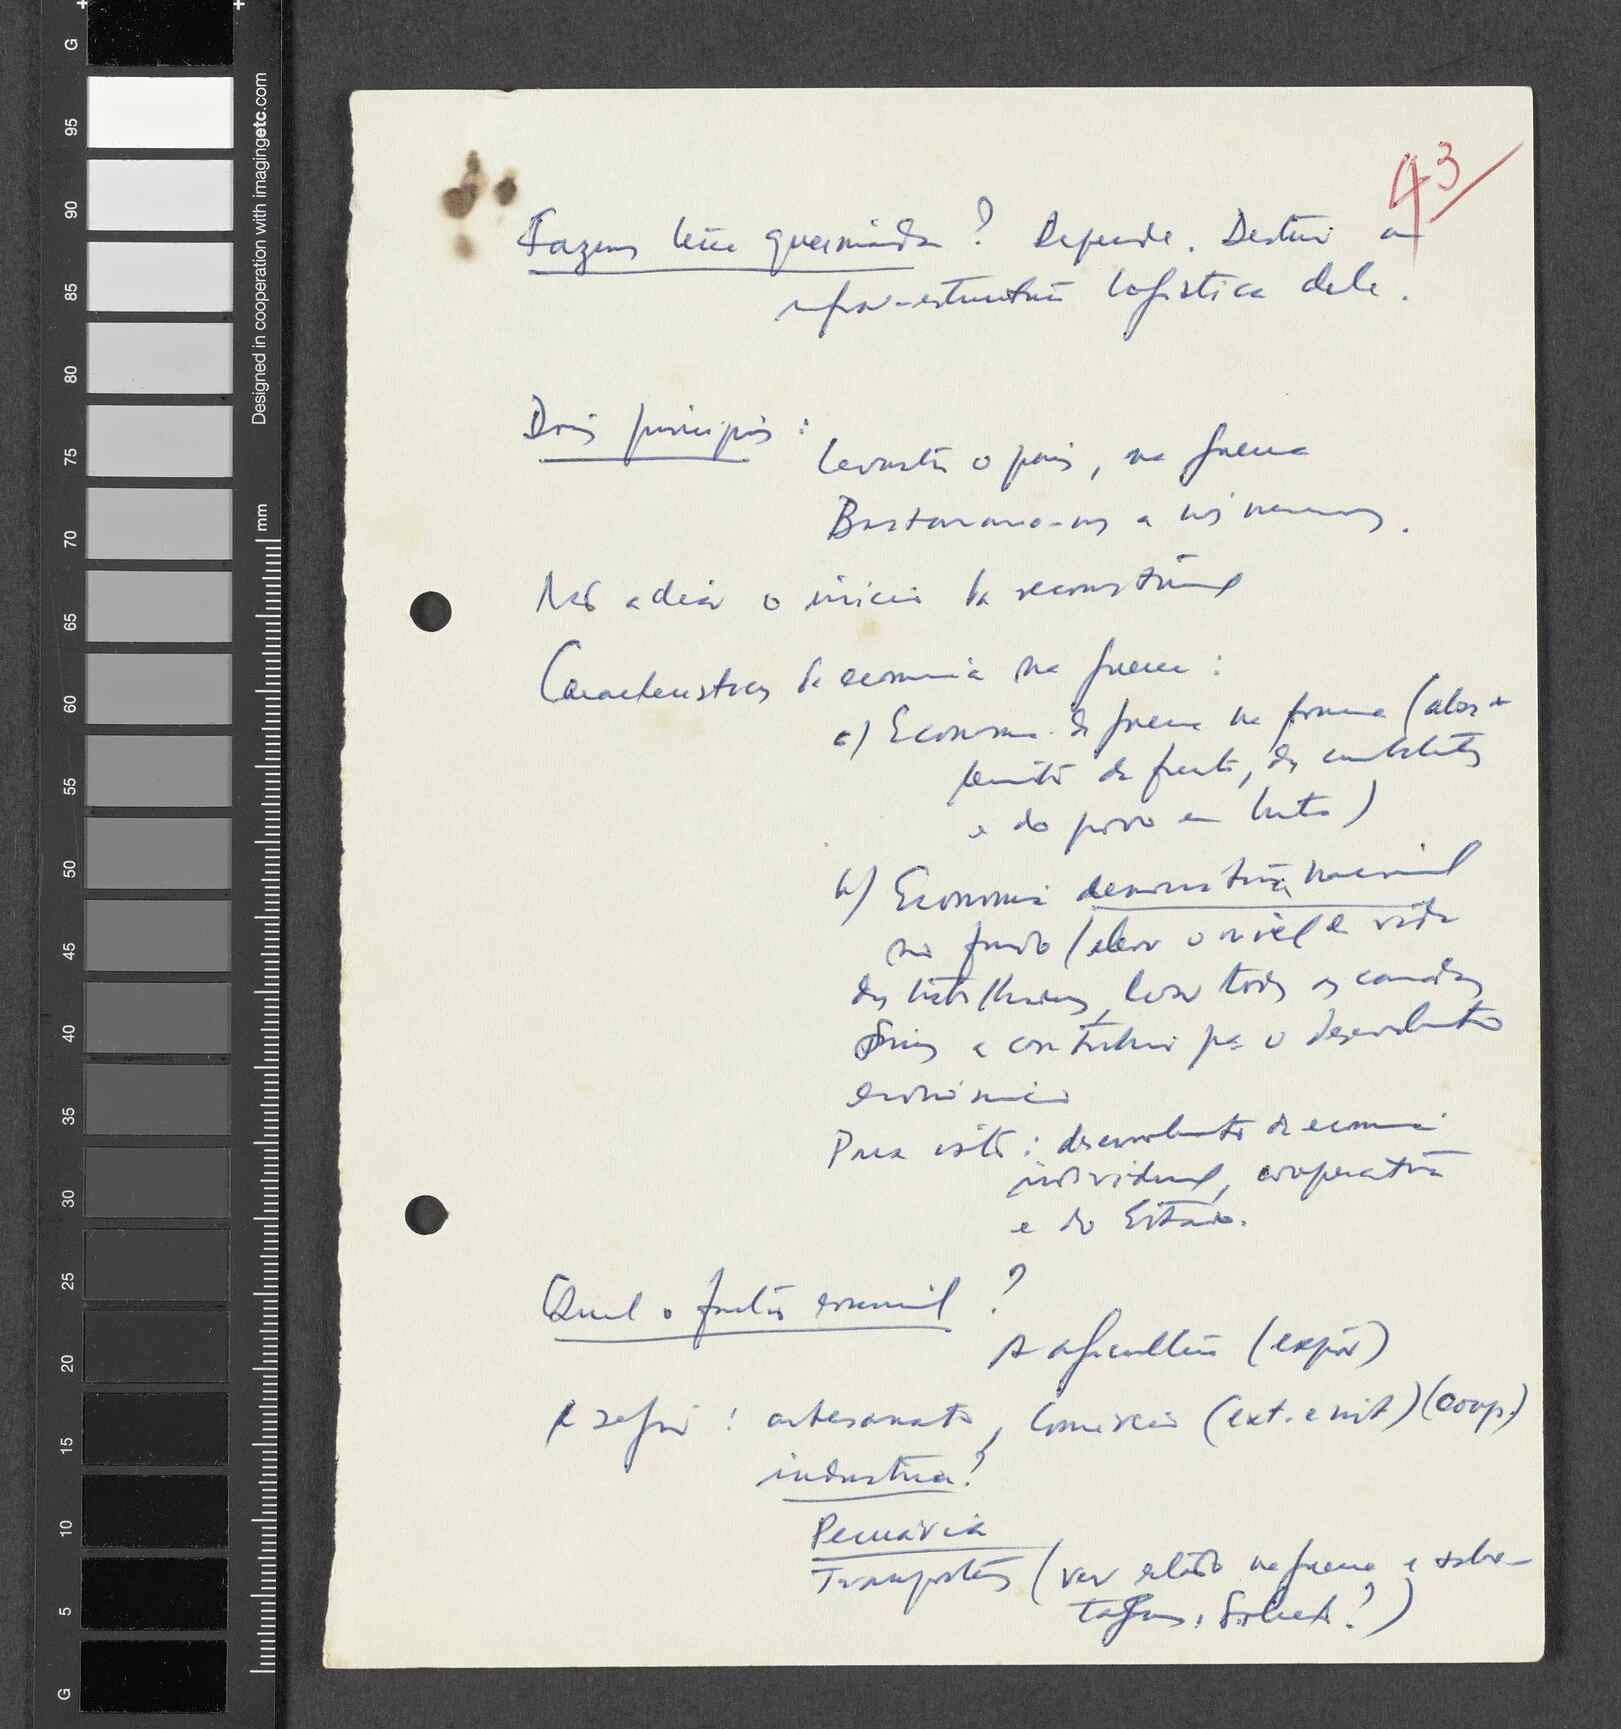 43
Fazemos terra queimada? Depende. Destruir a
infra-estrutura logística dele.
Dois princípios:
levantar o país, na guerra
Bastarmo-nos a nós mesmos.
Não adiar o início da reconstrução
Características da economia na guerra:
a) Economia de guerra na forma (abas-
tecimento da frente, dos combatentes
e do povo em luta)
b) Economia democrática nacional
no fundo (elevar o nível de vida
dos trabalhadores, levar todas as camadas
sociais a contribuir para o desenvolvimento
económico
Para isto: desenvolvimento da economia
individual, cooperativa
e do Estado.
Qual o factor essencial?
A agricultura (expôr)
A seguir: artesanato, comércio (ext. e int.) (coop.)
indústria?
Pecuária
Transportes (ver relação na guerra e sabo-
tagens,
G 95 90 85 80 75 70 65 60 55 50 45 40 35 30 25 20 15 10 5 G
Designed in cooperation with imagingetc.com
mm